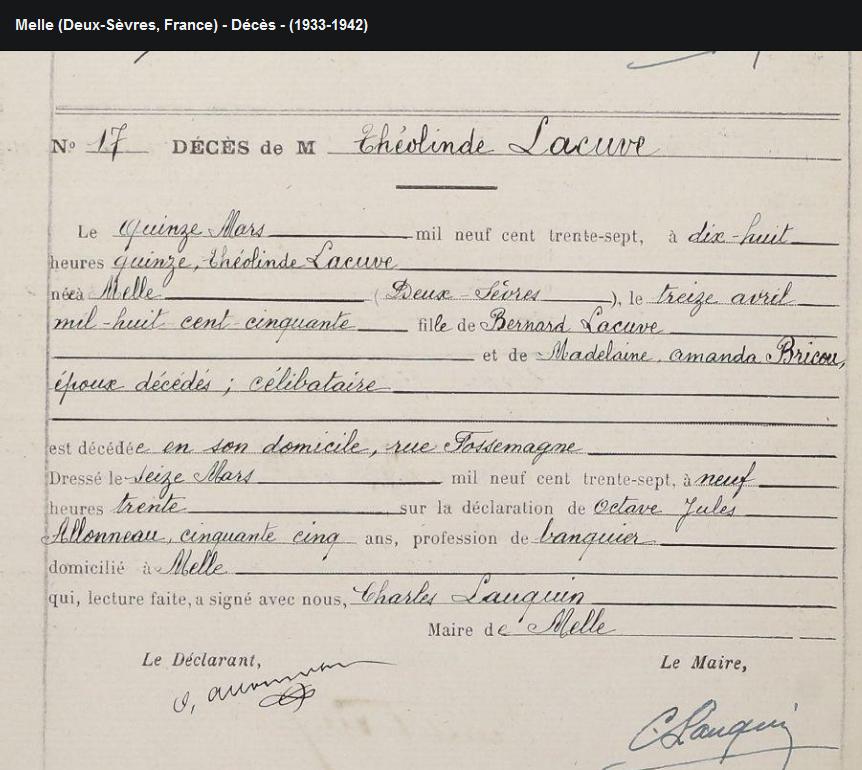 Melle (Deux-Sèvres, France) - Décès - (1933-1942)
Nº 17 DÉCÈS de M Théolinde Lacuve
Le quinze Mars mil neuf cent trente-sept, à dix-huit
heures quinze, Théolinde Lacuve
née à Melle (Deux-Sèvres), le treize avril
mil-huit cent-cinquante fille de Bernard Lacuve
et de Madelaine, amanda Bricou,
époux décédés ; célibataire
est décédée en son domicile, rue Fossemagne
Dressé le seize Mars mil neuf cent trente-sept, à neuf
heures trente sur la déclaration de Octave Jules
Allonneau, cinquante cinq ans, profession de banquier
domicilié à Melle
qui, lecture faite, a signé avec nous, Charles Lauquin
Maire de Melle
Le Déclarant, Le Maire,
O, Allonneau
C. Lauquin